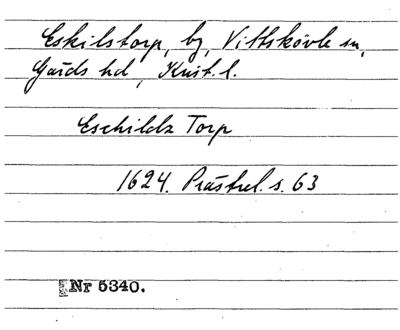 Eskilstorp, by, Vittskövle sn,
Gärds hd, Krist. l.
Eschildz Torp
1624. Prästrel. s. 63
Nr 5340.